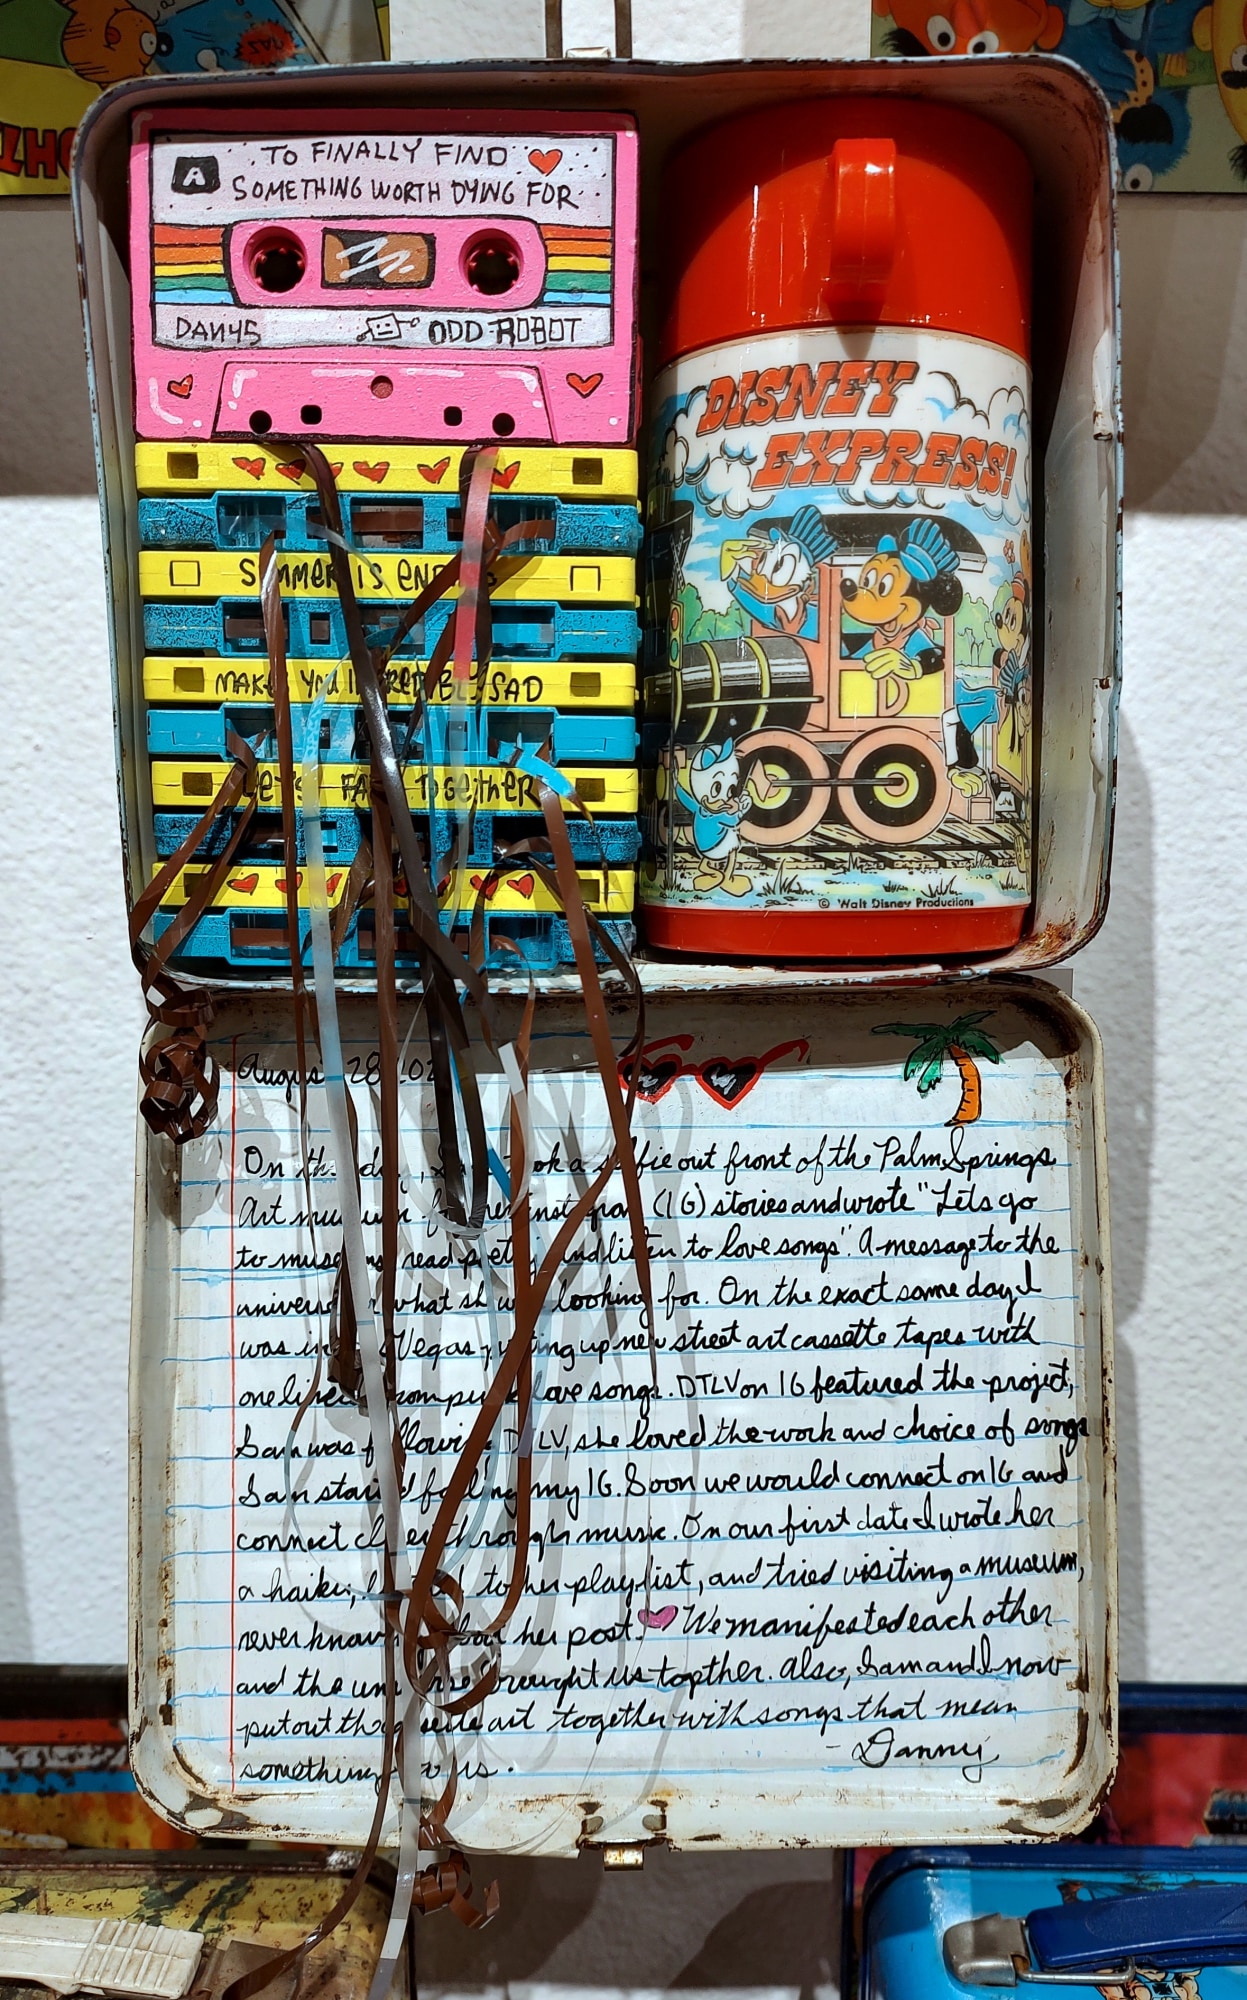 A
TO FINALLY FIND
SOMETHING WORTH DYING FOR
DANYS
ODD ROBOT
SUMMER IS ENDING
MAKES YOU INCREDIBLY SAD
LET'S FALL TOGETHER
DISNEY
EXPRESS!
D
© Walt Disney Productions
August 28
On this day, Sam took a selfie out front of the Palm Springs
Art museum for her instagram (IG) stories and wrote "Lets go
to museums, read poetry and listen to love songs". A message to the
universe what she was looking for. On the exact same day I
was in Vegas putting up new street art cassette tapes with
one liners from punk love songs. DTLV on IG featured the project,
Sam was following DTLV, she loved the work and choice of songs
Sam started following my IG. Soon we would connect on IG and
connect closer through music. On our first date I wrote her
a haiku, listened to her playlist, and tried visiting a museum,
never knowing about her post. We manifested each other
and the universe brought us together. Also, Sam and I now
put out the cassette art together with songs that mean
something to us.
- Danny